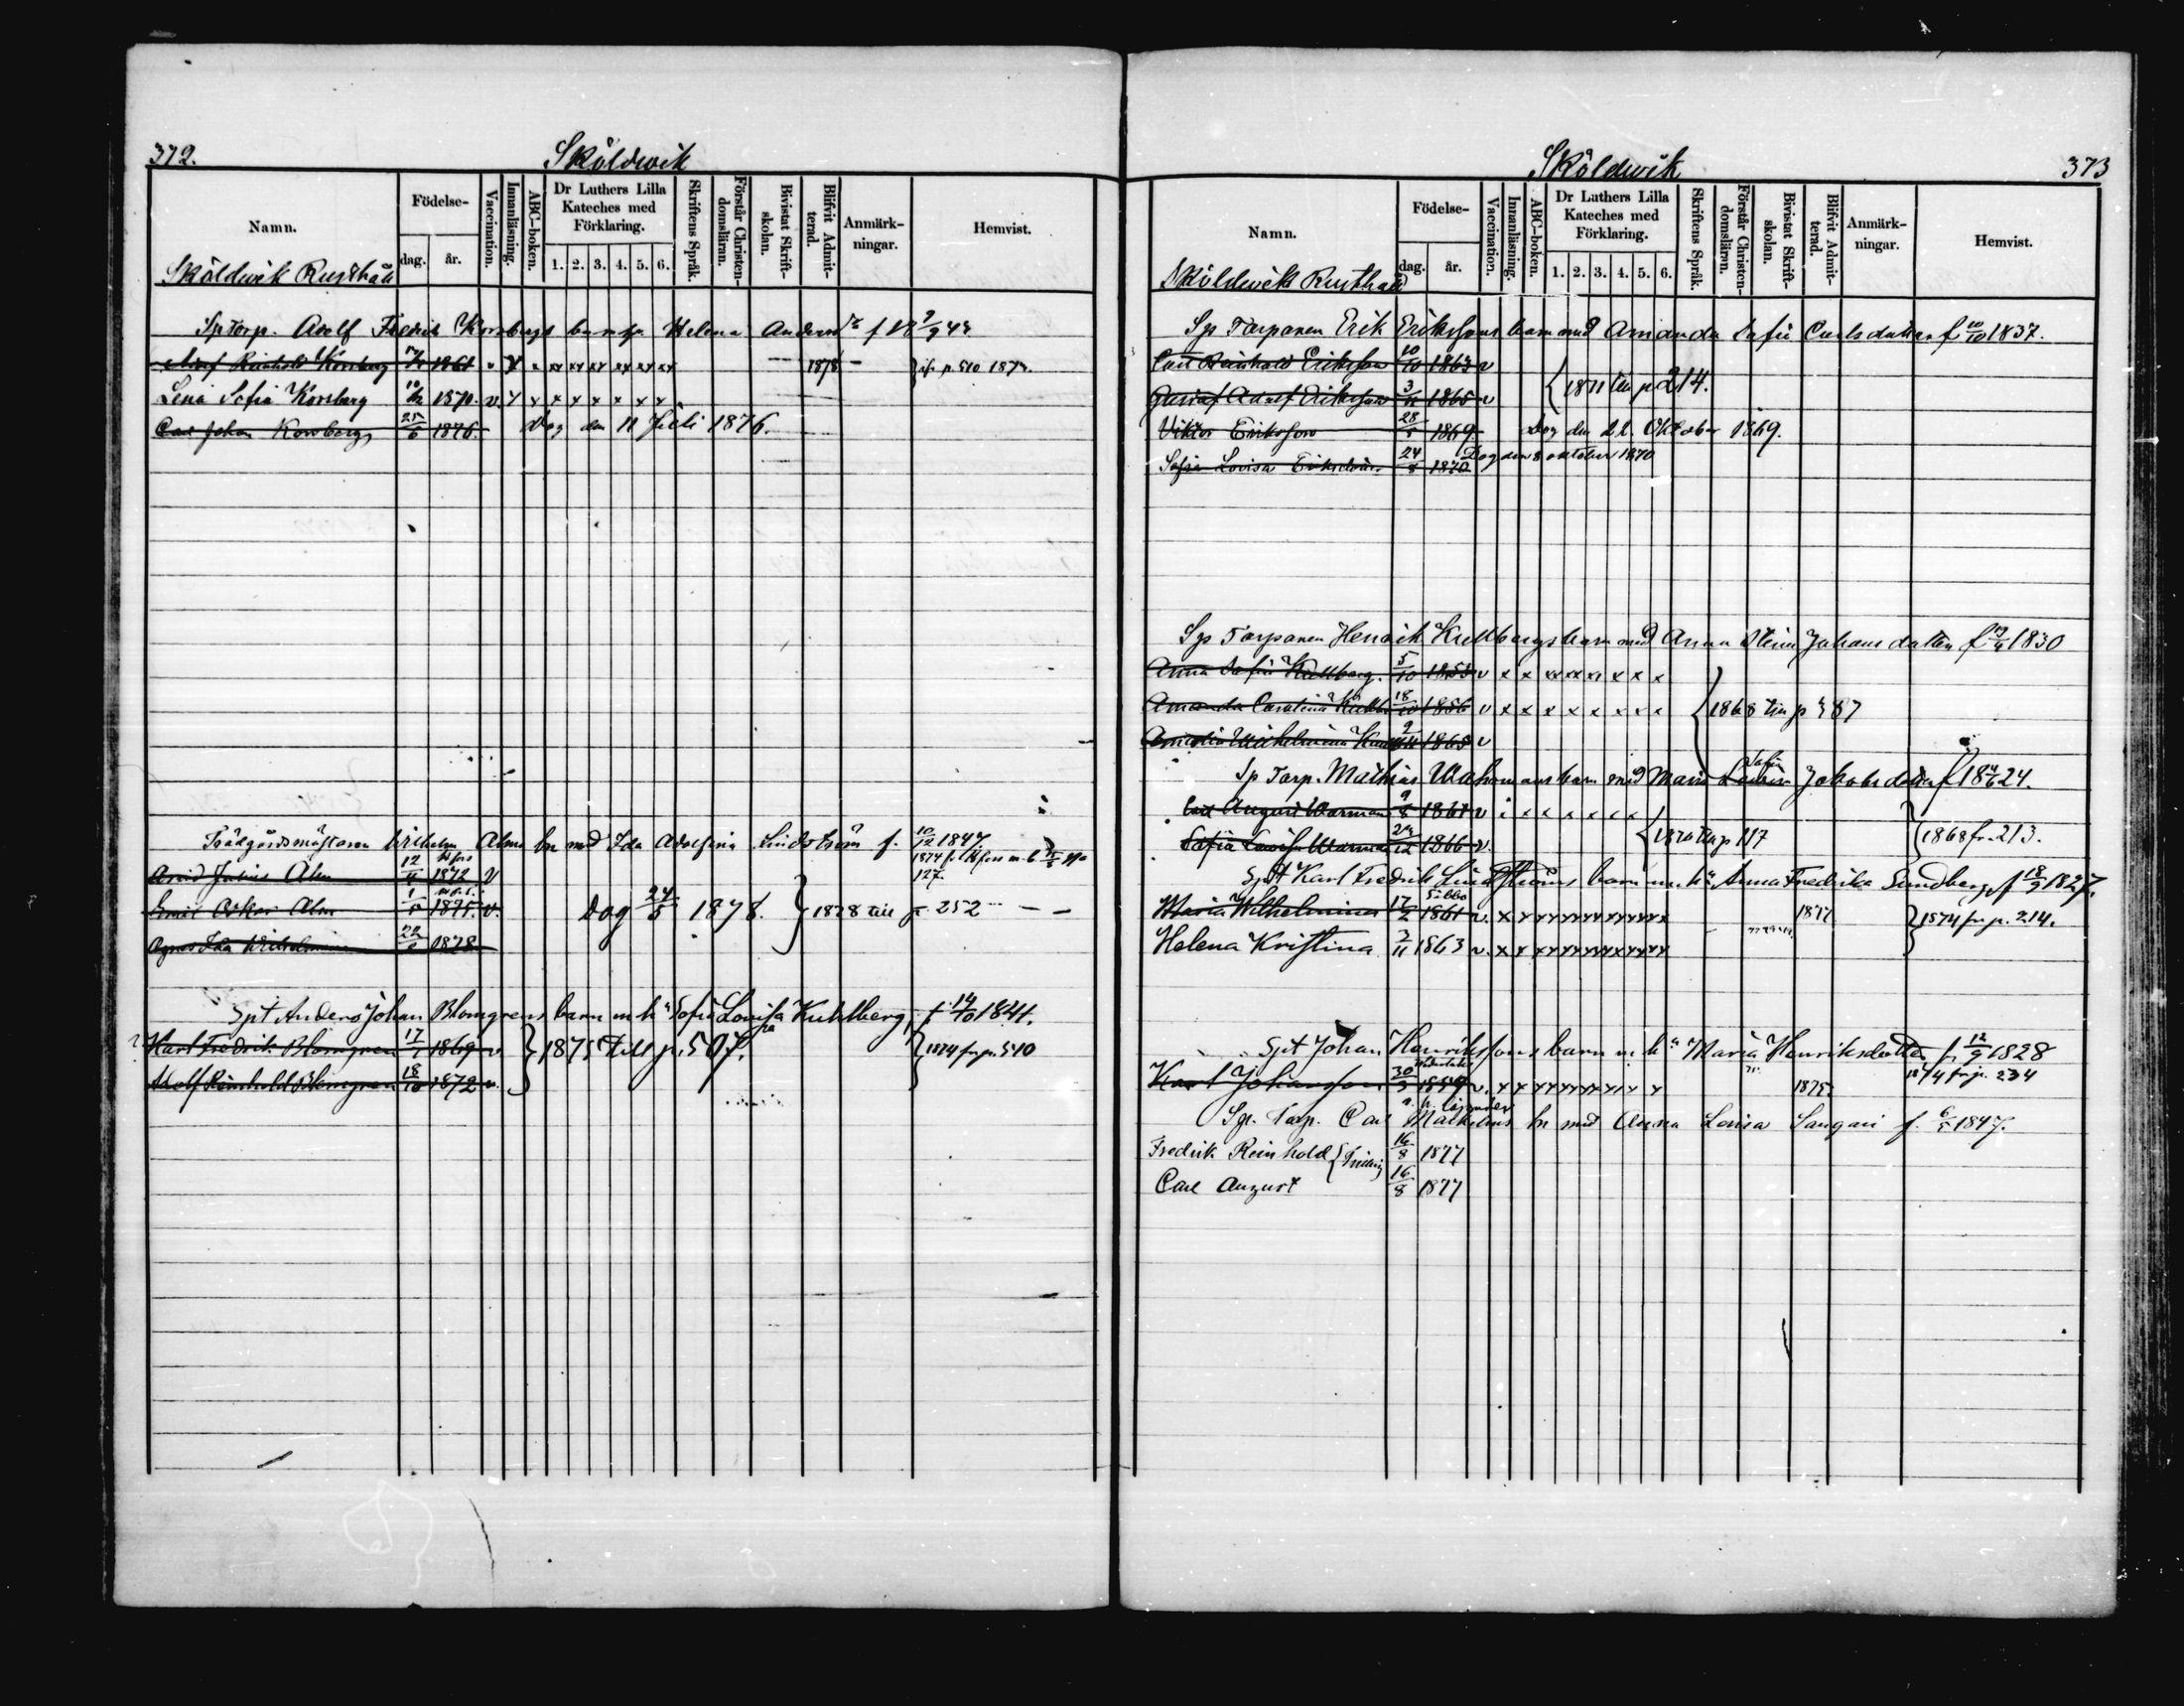 372.
Sköldwik
Namn.
Födelse-
dag.
år.
Vaccination.
Innanläsning.
ABC-boken.
Dr Luthers Lilla
Kateches med
Förklaring.
1. 2. 3. 4. 5. 6.
Skriftens Språk.
Förstår Christen-
domsläran.
Bivistat Skrift-
skolan.
Blifvit Admit-
terad.
Anmärk-
ningar.
Hemvist.
Sköldwik Rusthåll
Sptorp. Adolf Fredrik Korsbergs barn Helena f 18 9/9 44
Adolf Reinhold Korsberg 1861 v 1878 p. 510 1874.
Lena Sofia Korsberg 1870. v. x x x x x x x
Carl Johan Korsberg 25/6 1876. Dog den 11 Juli 1876.
Trädgårdsmästaren Wilhelm Alms bn med Ida Adolfina Lindström f. 10/12 1847.
127.
Arvid Julius Alm 12/4 1872 v
Emil Oskar Alm 1/5 1875. v. Dog 24/5 1878. } 1878 till p. 252
Agnes Ida Wilhelmina 22 1878
Spt Anders Johan Blomgrens barn m h Sofia Lovisa Kuhlberg, f. 14/10 1841.
Karl Fredrik Blomgren 17 1869 v } 1875 till p. 507. } 1874 fr p. 510
Adolf Reinhold Blomgren 18/10 1872 v.
Sköldwik
373
Namn.
Födelse-
dag.
år.
Vaccination.
Innanläsning.
ABC-boken.
Dr Luthers Lilla
Kateches med
Förklaring.
1. 2. 3. 4. 5. 6.
Skriftens Språk.
Förstår Christen-
domsläran.
Bivistat Skrift-
skolan.
Blifvit Admit-
terad.
Anmärk-
ningar.
Hemvist.
Sköldwik Rusthåll
Sp Torparen Erik Erikssons barn med Amanda Sofia Carlsdotter f 10/10 1837.
Carl Reinhold Eriksson 10/10 1863 v
Gustaf Adolf Eriksson 3/11 1865 v { 1871 till p 214.
Viktor Eriksson 28 1869. Dog den 22. Oktober 1869.
Sofia Lovisa Eriksdotter 24/8 1870 Dog den 8 oktober 1870
Sp Torparen Henrik Kullbergs barn med Anna Johansdotter f 1830
Anna Sofia Kullberg. 5/10 1853 v x x xx xx x x x x
Amanda Carolina 18/10 1856 v x x x x x x x x { 1868 till p 487
Amalia Wilhelmina 9/11 1865 v
Sp Torp. Mathias Wahrmans barn med Maria Sofia Jakobsdotter f 18 4/6 24.
Carl August Warman 9/8 1861 v x x x x x x
Sofia Lovisa Warman 24/12 1866 v. { 1870 till p 117 } 1868 fr. 213.
Spt Karl Fredrik Lindströms barn m. h. Anna Fredrika Sundberg f 18/9 1827.
Sibbo
Maria Wilhelmina 17/2 1861 v. x x x x x x x x x x x 1877 } 1874 fr. p. 214.
Helena Kristina 3/11 1863 v. x x x x x x x x x x x
Spt Johan Henrikssons barn m h Maria Henriksdotter f. 12/9 1828
1874 fr p. 234
Karl Johansson 30/3 1859 v. x x x x x x x x x x 1875.
Sp. Torp. Carl Malmbergs bn med Anna Lovisa f. 6/5 1847.
Fredrik Reinhold { Tvilling 16/8 1877
Carl August 16/8 1877